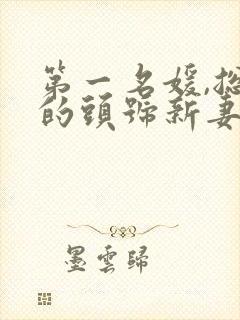 第一名媛,总
的頭號新妻
墨雲歸